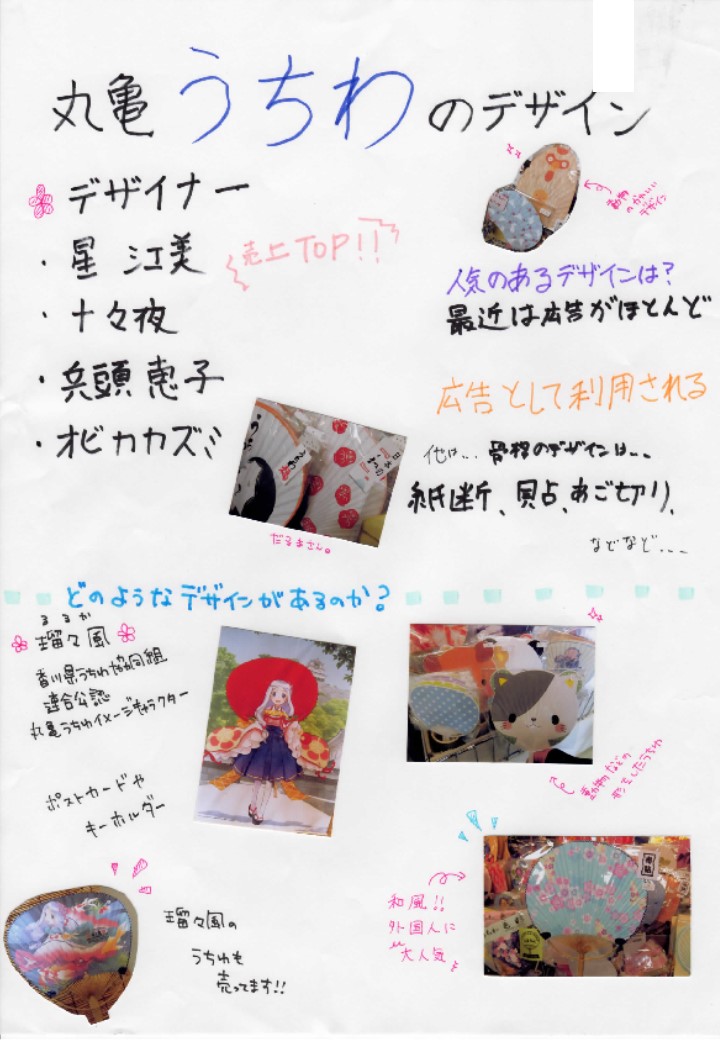 丸亀うちわのデザイン
デザイナー
・星 江美
売上TOP!!
・十々夜
・兵頭 恵子
・オビカカズミ
動物のかわいいデザイン
人気のあるデザインは?
最近は広告がほとんど
広告として利用される
他は... 骨格のデザインは...
紙断、貝占、あご切り、
などなど...
だるまさん。
どのようなデザインがあるのか?
るるか
瑠々風
香川県うちわ協同組
連合公認
丸亀うちわイメージキャラクター
ポストカードや
キーホルダー
動物などの
形をしたうちわ
和風!!
外国人に
大人気
瑠々風の
うちわも
売ってます!!